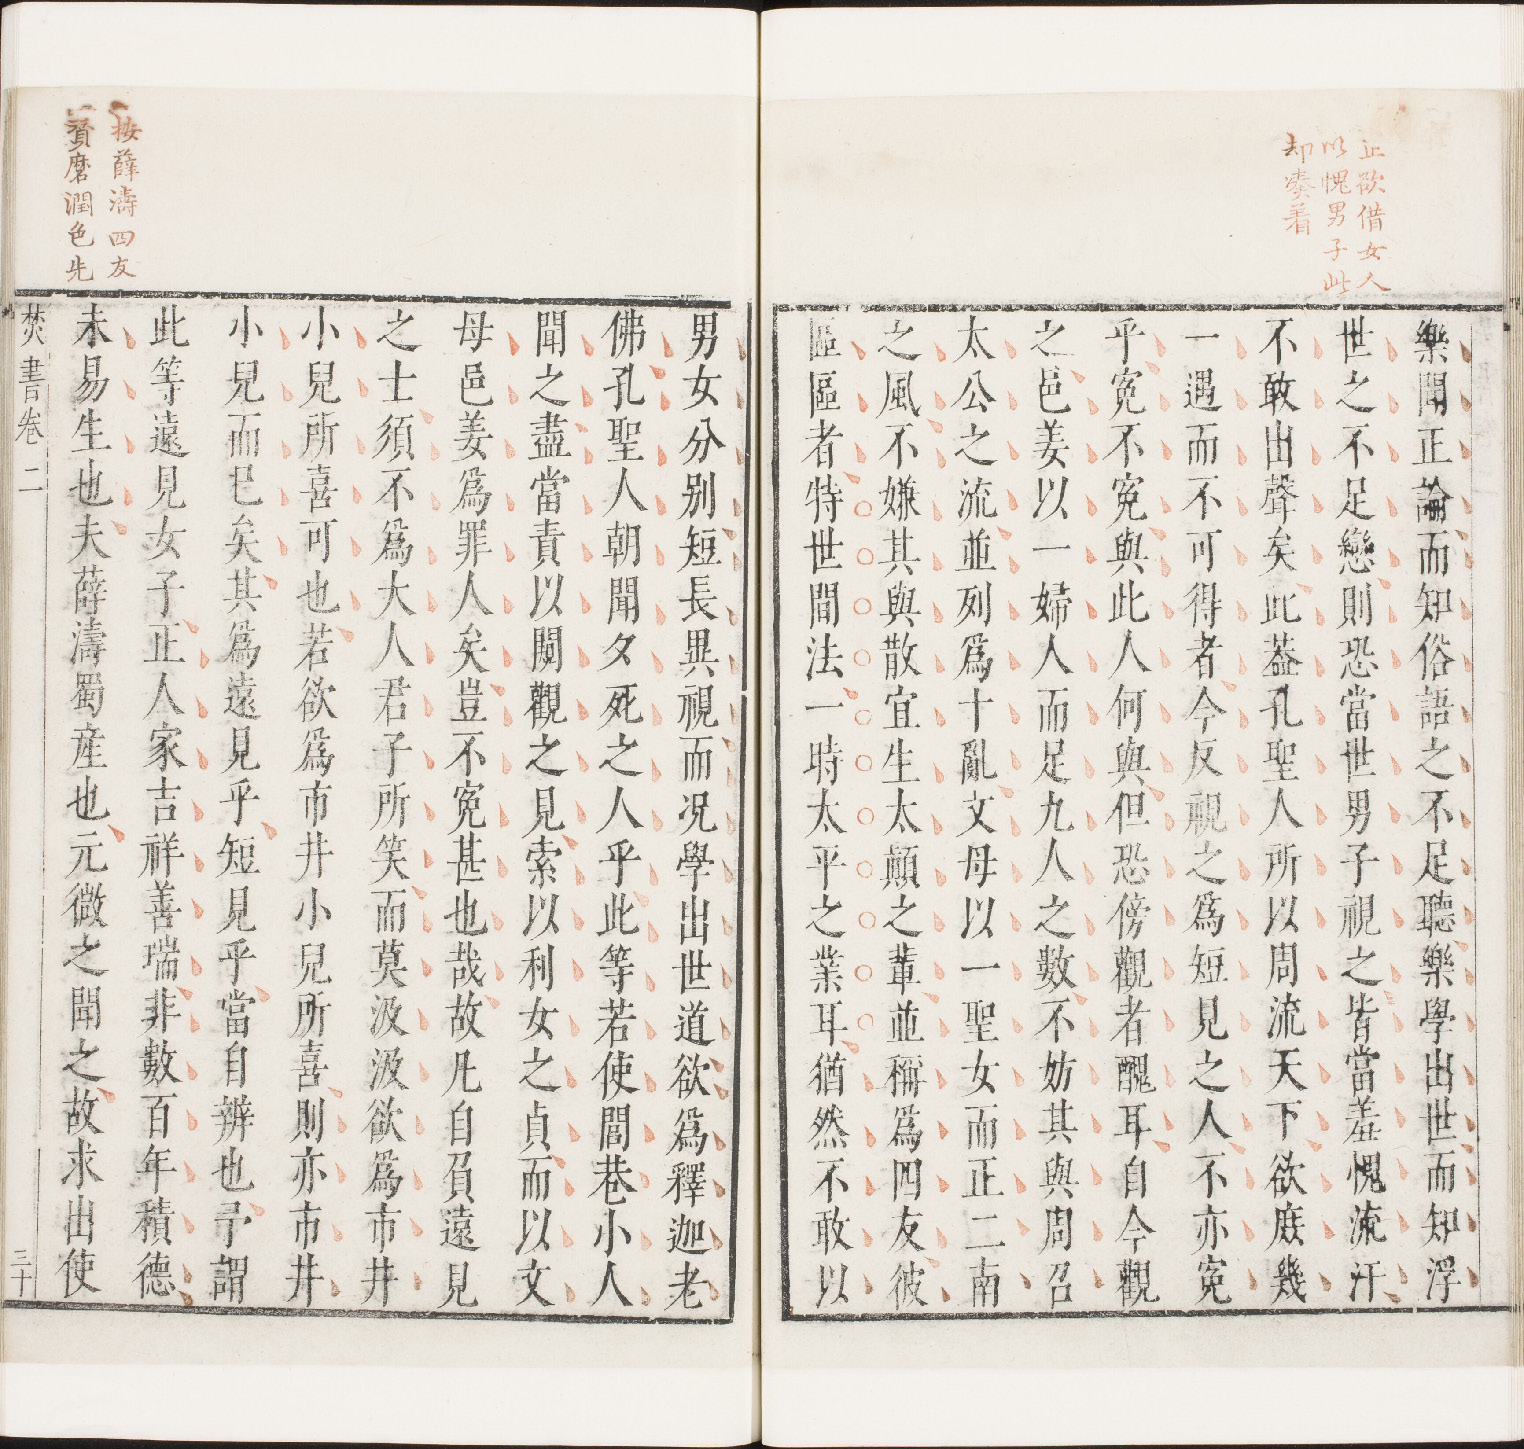 止欲借女人
以愧男子此
却凑着
樂聞正論而知俗語之不足聽樂學出世而知浮
世之不足戀則恐當世男子視之皆當羞愧流汗
不敢出聲矣此葢孔聖人所以周流天下欲庶幾
一遇而不可得者今反視之爲短見之人不亦寃
乎寃不寃與此人何與但恐傍觀者醜耳自今觀
之邑姜以一婦人而足九人之數不妨其與周召
太公之流並列爲十亂文母以一聖女而正二南
之風不嫌其與散宜生太顛之輩並稱爲四友彼
區區者特世間法一時太平之業耳猶然不敢以
男女分别短長異視而况學出世道欲爲釋迦老
佛孔聖人朝聞夕死之人乎此等若使閭巷小人
聞之盡當責以闚觀之見索以利女之貞而以文
母邑姜爲罪人矣豈不寃甚也哉故凡自負遠見
之士須不爲大人君子所笑而莫汲汲欲爲市井
小兒所喜可也若欲爲市井小兒所喜則亦市井
小兒而已矣其爲遠見乎短見乎當自辨也予謂
此等遠見女子正人家吉祥善瑞非數百年積德
未易生也夫薛濤蜀産也元微之聞之故求出使
按薛濤四友
贊磨潤色先
焚書卷二
三十